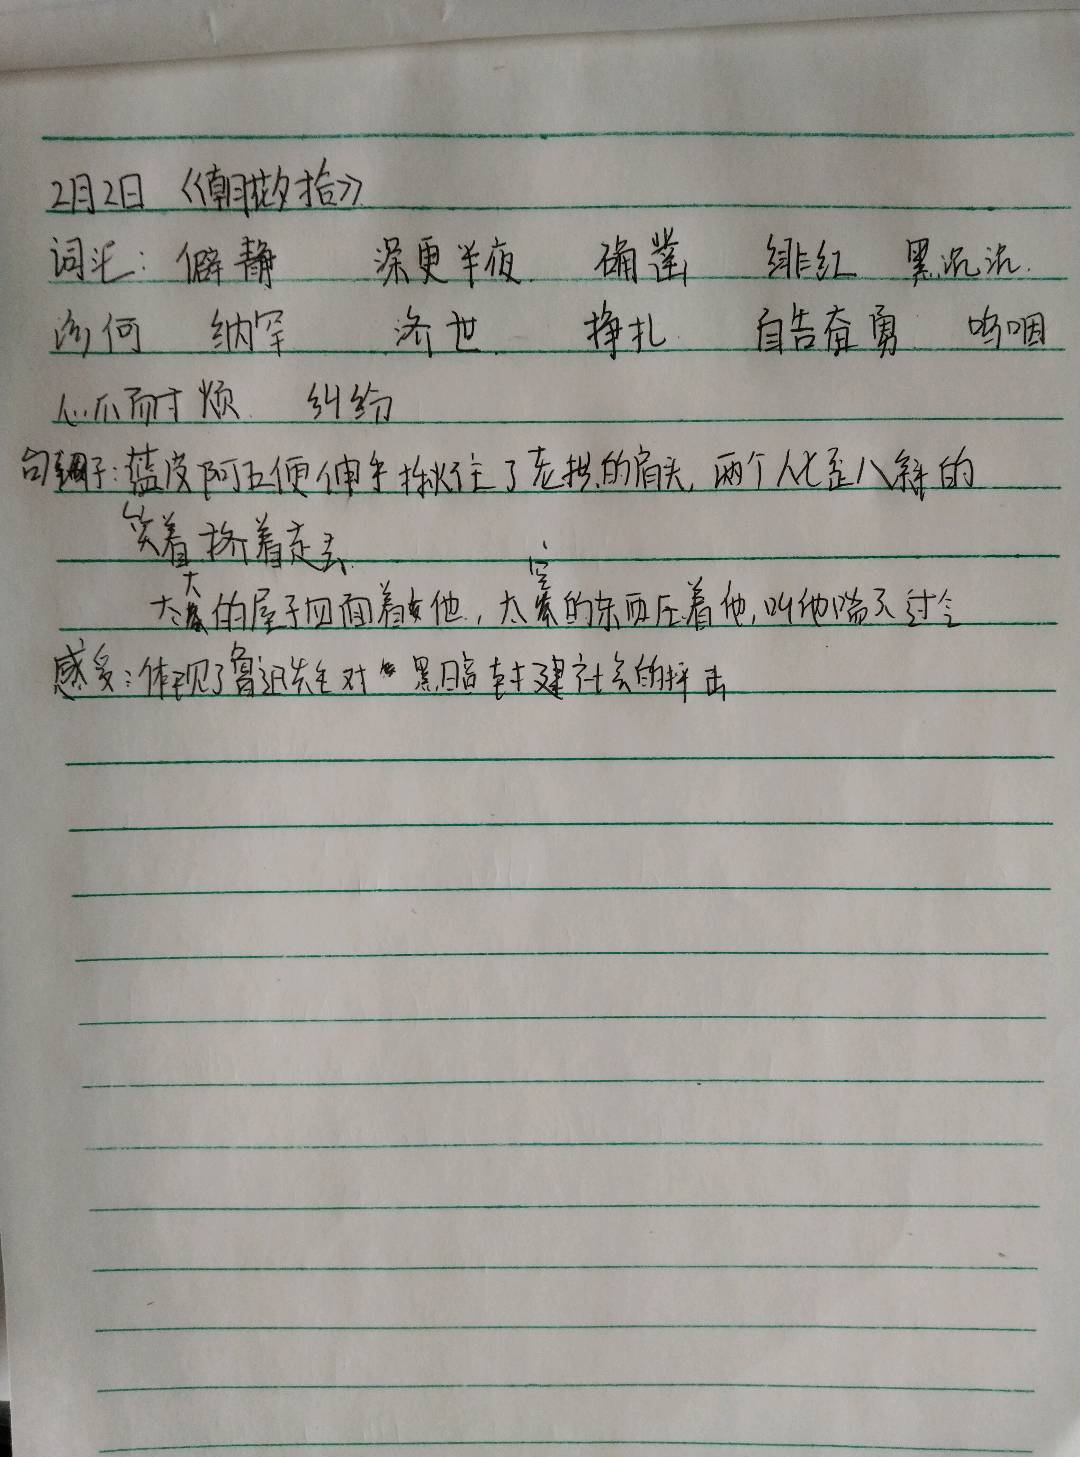 2月2日 《朝花夕拾》
词汇: 僻静 深更半夜 确凿 绯红 黑沉沉.
为何 纳罕 济世 挣扎 自告奋勇 呜咽
心不耐烦 纠纷
句子: 蓝皮阿五便伸手揪住了老拱的肩头, 两个人七歪八斜的
笑着挤着走去
太大的屋子四面着他, 太空的东西压着他, 叫他喘不过气
感受: 体现了鲁迅先生对黑暗封建社会的抨击